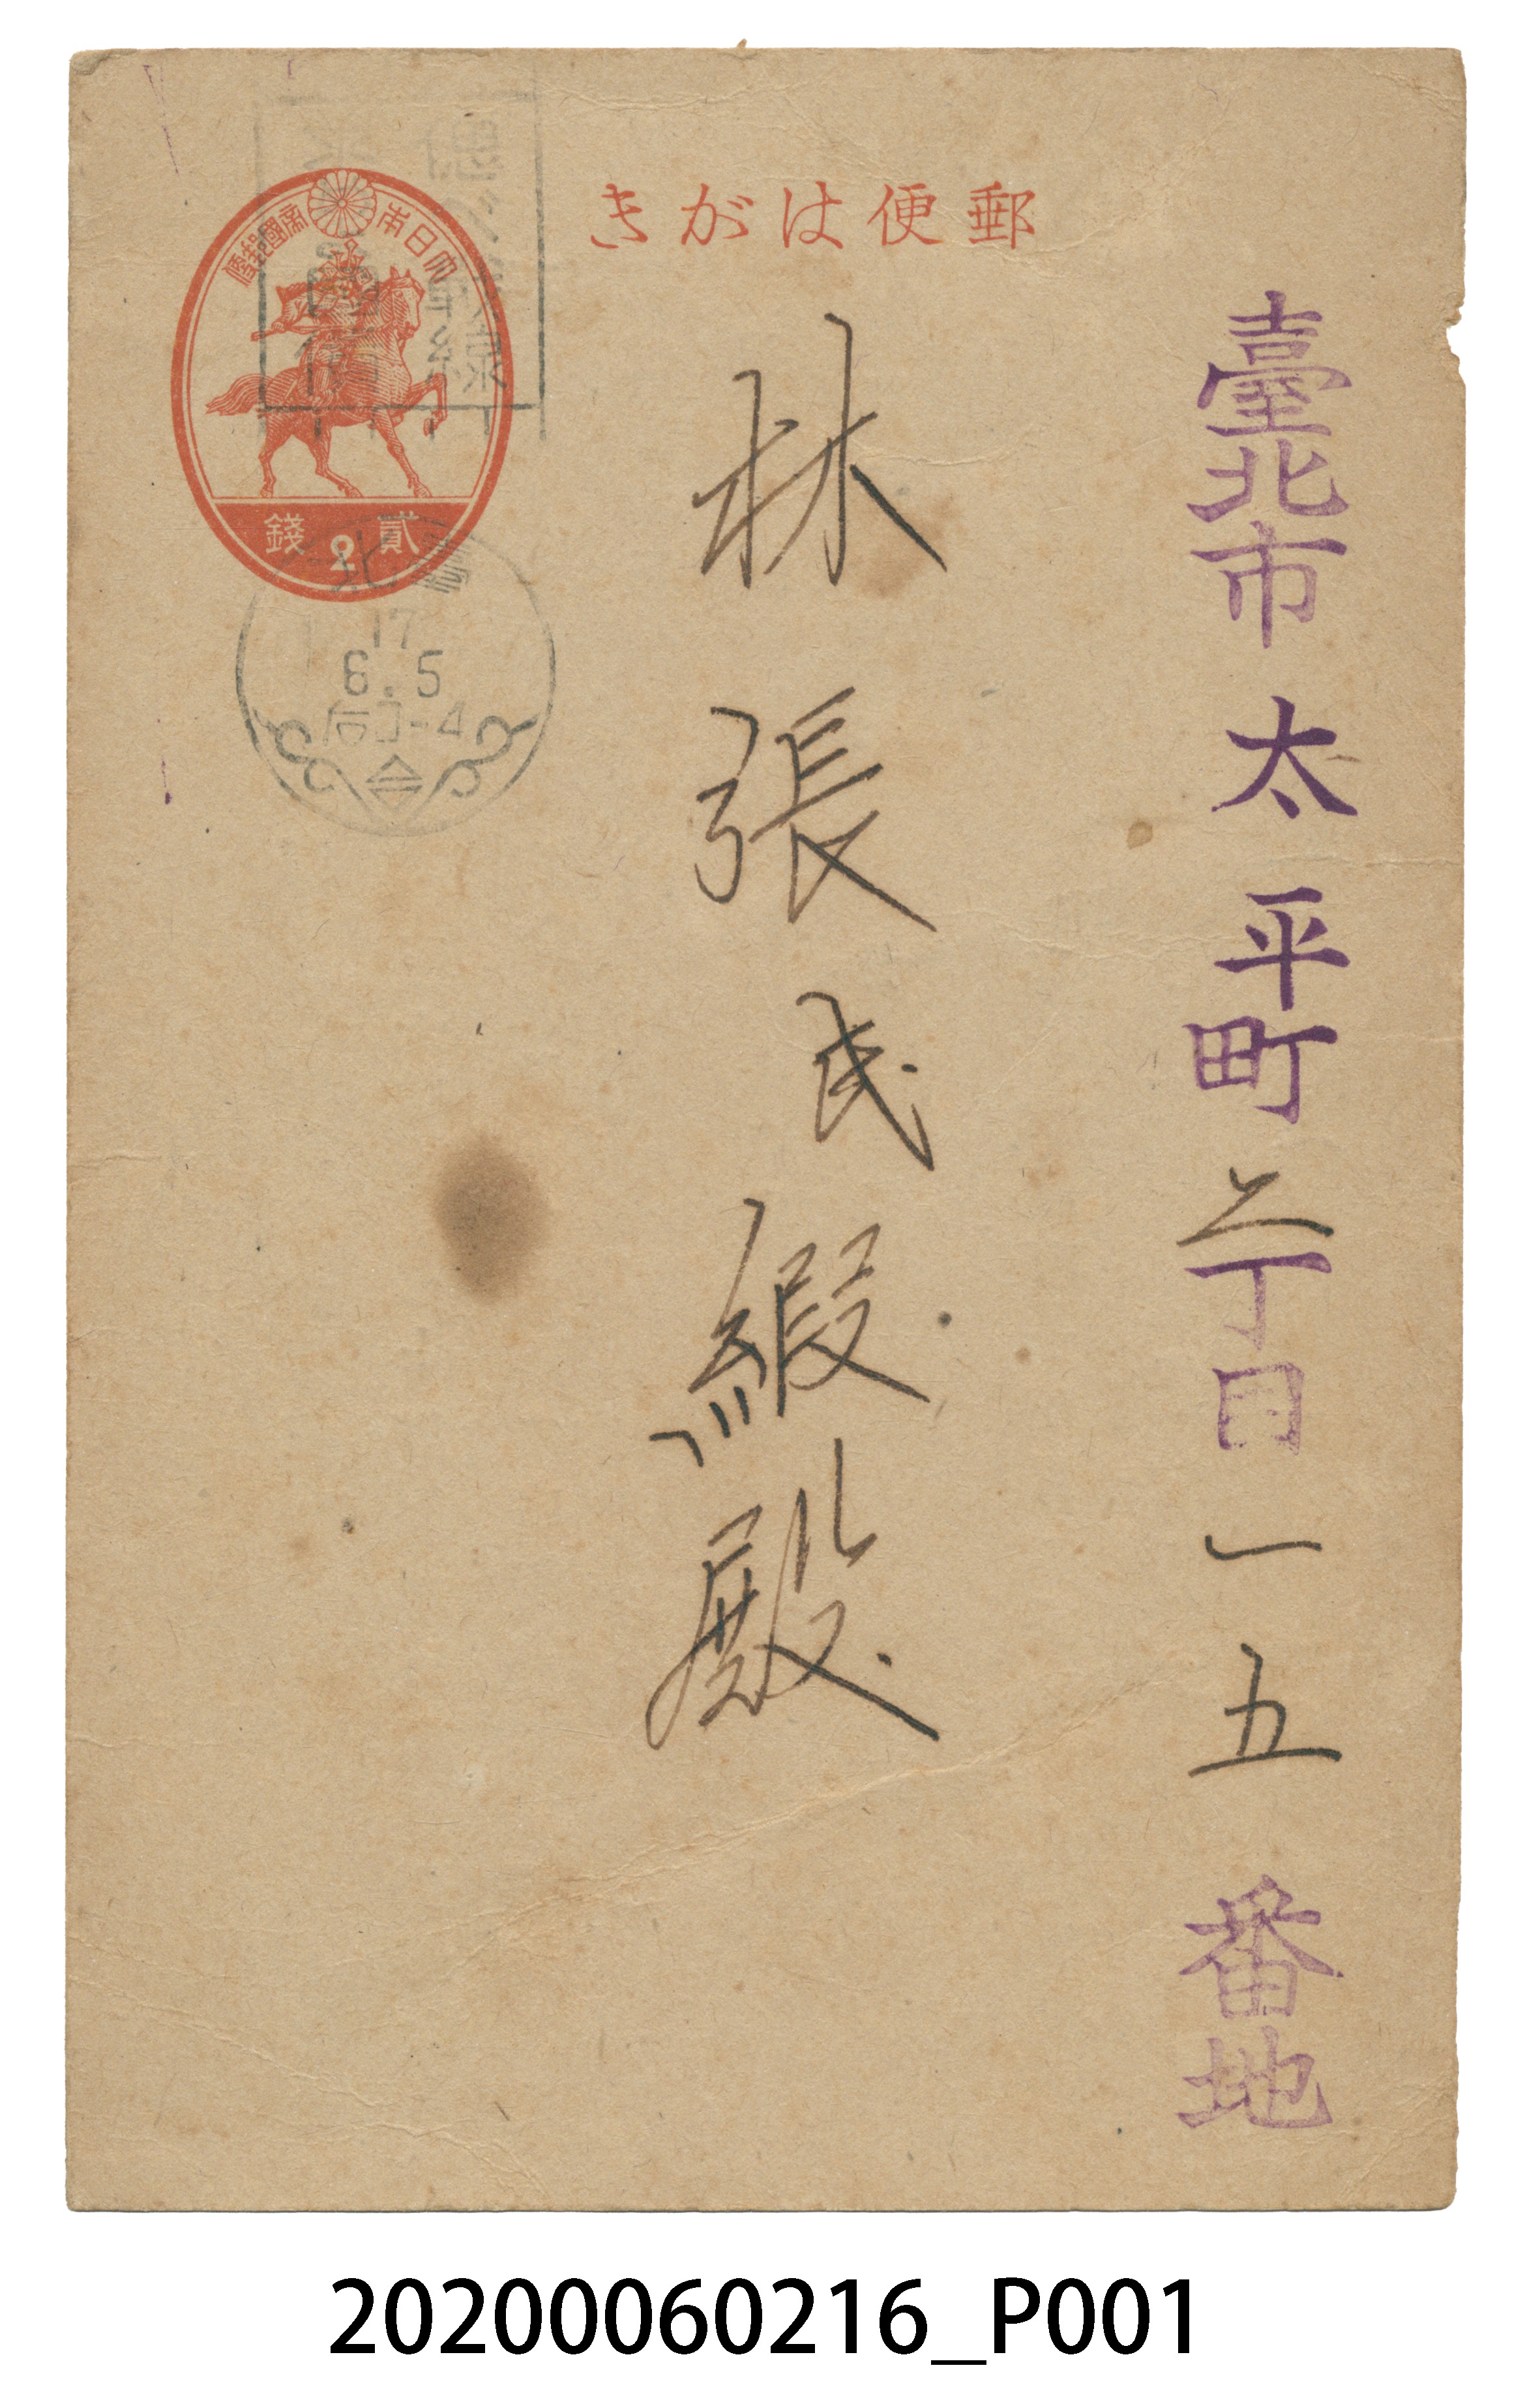 郵便はがき
大日本帝國郵便
貳錢
2
臺北
17
6.5
后0-4
臺北市太平町二丁目一五番地
林張氏緞殿
20200060216_P001